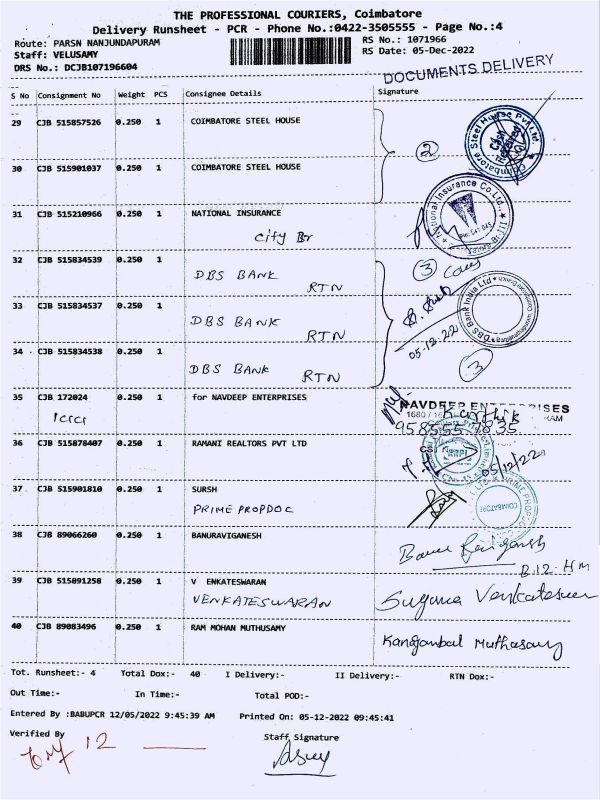 THE PROFESSIONAL COURIERS, Coimbatore
Delivery Runsheet - PCR - Phone No.:0422-3505555 - Page No.:4
Route: PARSN NANJUNDAPURAM
RS No.: 1071966
Staff: VELUSAMY
RS Date: 05-Dec-2022
DRS No.: DCJB107196604
DOCUMENTS DELIVERY
S No Consignment No Weight PCS Consignee Details Signature
29 CJB 515857526 0.250 1 COIMBATORE STEEL HOUSE
2
Coimbatore Steel House Pvt Ltd.
30 CJB 515901037 0.250 1 COIMBATORE STEEL HOUSE
31 CJB 515210966 0.250 1 NATIONAL INSURANCE
City Br
National Insurance Co. Ltd.,
32 CJB 515834539 0.250 1 DBS BANK RTN
3
33 CJB 515834537 0.250 1 DBS BANK RTN
05-12-22
DBS Bank India Ltd
34 CJB 515834538 0.250 1 DBS BANK RTN
3
35 CJB 172024 0.250 1 for NAVDEEP ENTERPRISES
ICICI
NAVDEEP ENTERPRISES
Karthik
36 CJB 515878407 0.250 1 RAMANI REALTORS PVT LTD
05/12/22
37 CJB 515901810 0.250 1 SURSH
PRIME PROPDOC
COIMBATORE
38 CJB 89066260 0.250 1 BANURAVIGANESH
39 CJB 515891258 0.250 1 V ENKATESWARAN
VENKATESWARAN
Suguna Venkateswaran
40 CJB 89083496 0.250 1 RAM MOHAN MUTHUSAMY
Tot. Runsheet:- 4 Total Dox:- 40 I Delivery:- II Delivery:- RTN Dox:-
Out Time:- In Time:- Total POD:-
Entered By :BABUPCR 12/05/2022 9:45:39 AM Printed On: 05-12-2022 09:45:41
Verified By Staff Signature